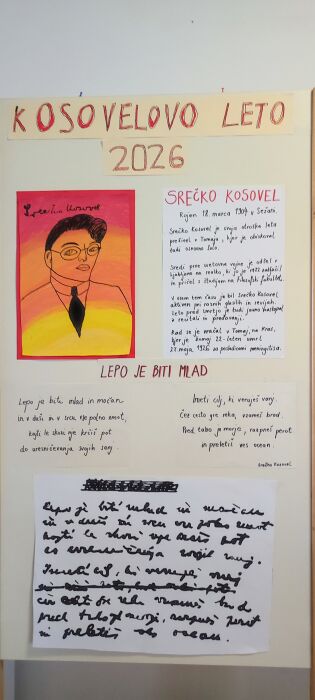 KOSOVELOVO LETO
2026
Srečko Kosovel
SREČKO KOSOVEL
Rojen 18. marca 1904 v Sežani.
Srečko Kosovel je svoja otroška leta
preživel v Tomaju, kjer je obiskoval
tudi osnovno šolo.
Sredi prve svetovne vojne je odšel v
Ljubljano na realko, ki jo je 1922 zaključil
in pričel s študijem na Filozofski fakulteti.
V vsem tem času je bil Srečko Kosovel
aktiven pri raznih glasilih in revijah.
Leto pred smrtjo je tudi javno nastopal
z recitali in predavanji.
Rad se je vračal v Tomaj, na Kras,
kjer je komaj 22-leten umrl
27. maja 1926 za posledicami meningitisa.
LEPO JE BITI MLAD
Lepo je biti mlad in močan
in v duši in v srcu nje polno
kajti le skozi nje kroži pot
do uresničevanja svojih sanj.
Imeti cilj, ki veruješ vanj.
Čez cesto gre reka, vzameš brod.
Pred tabo je morje, razpneš perot
in preletiš ves ocean.
Srečko Kosovel
Lepo je biti mlad in močan
in v duši in srcu
pot
Imeti cilj, ki veruješ vanj
reka vzameš brod
pred tabo je morje, razpneš perot
in preletiš ves ocean.